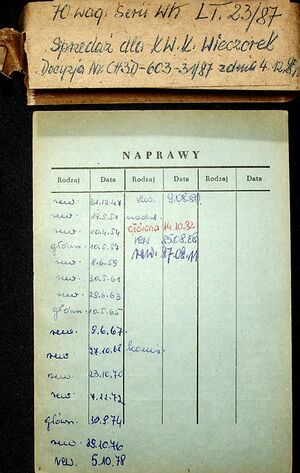 70 wag. Serii Wk LT. 23/87
Sprzedaż dla K.W.K. Wieczorek
Decyzja Nr CH3D-603-31/87 z dnia 4.12.87
NAPRAWY
Rodzaj Data Rodzaj Data Rodzaj Data
rew. 31.12.47 rew. 9.08.80
rew. 19.5.51
rew. 10.4.54 główna 14.10.82
główn. 10.5.57 rew 85.08.08
rew. 8.6.59 rew. 87.08.11
rew. 30.5.61
rew. 29.6.63
główn. 10.5.65
rew. 9.6.67
rew. 27.10.68
rew. 23.10.70
rew. 7.11.72
główn. 10.9.74
rew. 29.10.76
rew. 5.10.78